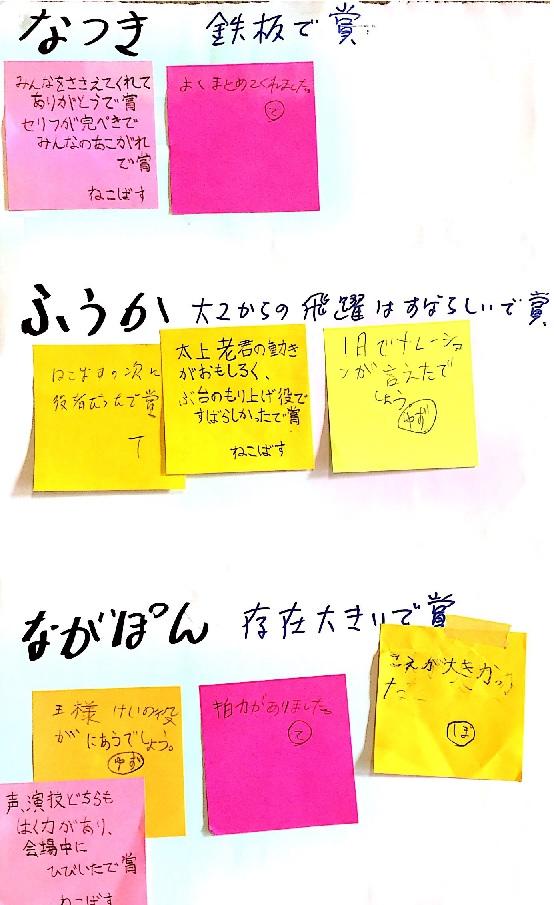 なつき 鉄板で賞
みんなをささえてくれて
ありがとうで賞
セリフが完ぺきで
みんなのあこがれ
で賞
ねこばす
よくまとめてくれました。
て
ふうか 大2からの飛躍はすばらしいで賞
ねこばすの次に
役者だったで賞
T
太上老君の動き
がおもしろく、
ぶ台のもり上げ役で
すばらしかったで賞
ねこばす
1日でナレーショ
ンが言えたで
しょう
ゆず
ながぽん 存在大きいで賞
王様 けいの役
がにあうでしょう。
ゆず
拍力がありました。
て
こえが大きかっ
た
しほ
声、演技どちらも
はく力があり、
会場中に
ひびいたで賞
ねこばす